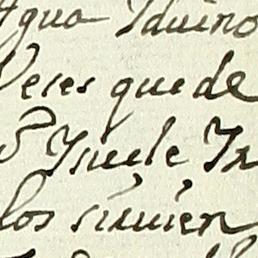 Agua Yduino
Veses que de
Y suele Yr
los siruien